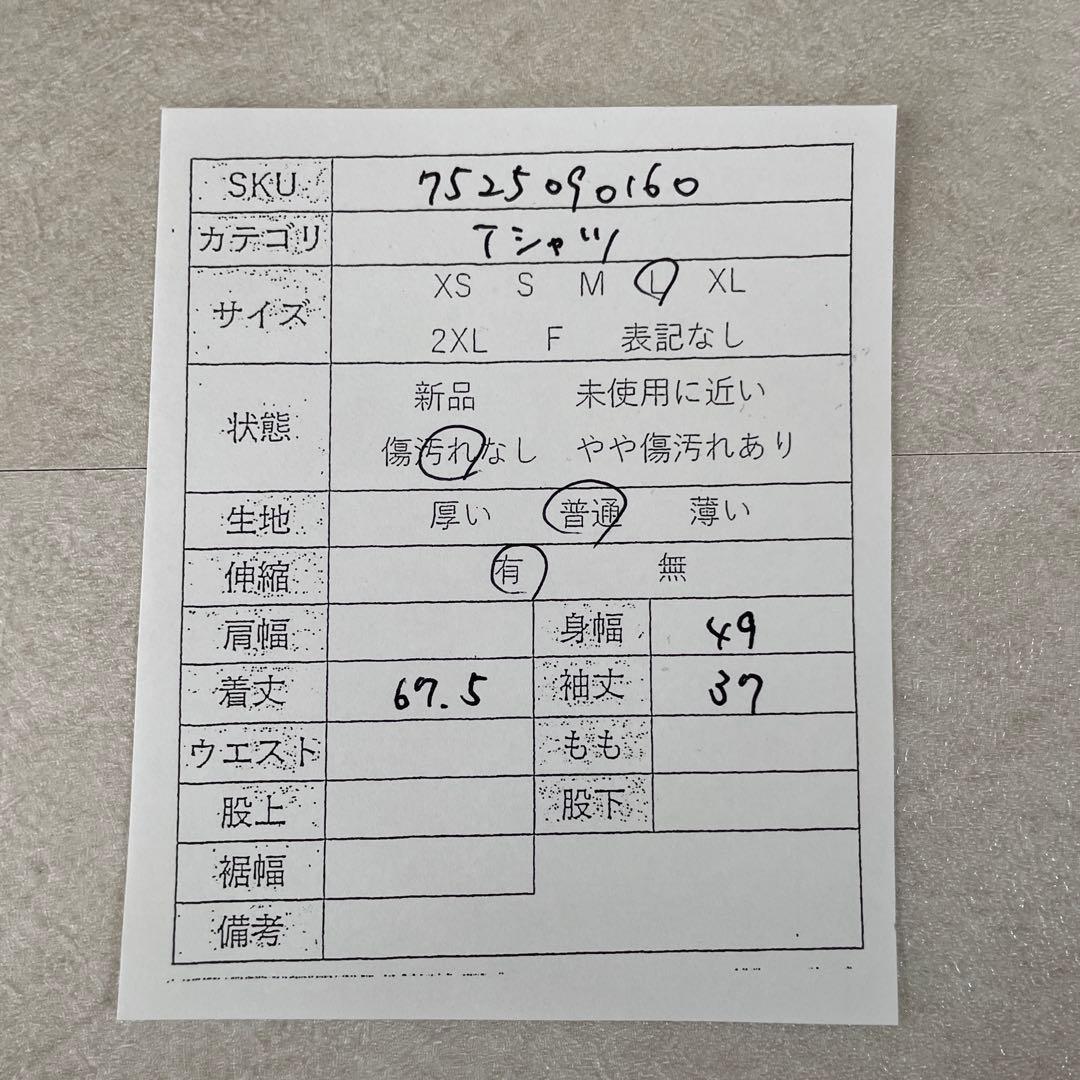 SKU 7525090160
カテゴリ Tシャツ
サイズ XS S M L XL
2XL F 表記なし
状態 新品 未使用に近い
傷汚れなし やや傷汚れあり
生地 厚い 普通 薄い
伸縮 有 無
肩幅 身幅 49
着丈 67.5 袖丈 37
ウエスト もも
股上 股下
裾幅
備考